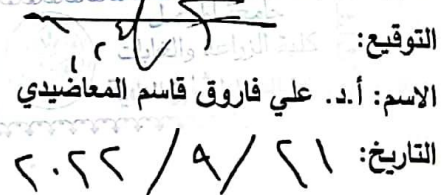 التوقيع:
الاسم: أ.د. علي فاروق قاسم المعاضيدي
التاريخ: ٢١ / ٩ / ٢٠٢٢